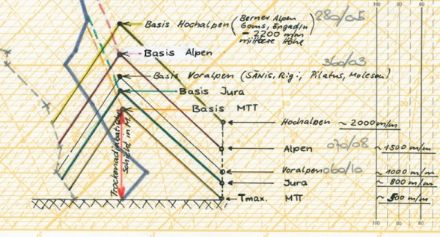 Basis Hochalpen (Berner Alpen
Goms, Engadin
~ 2200 m/m
mittlere Höhe
280/05
Basis Alpen
360/03
Basis Voralpen (Säntis, Rigi, Pilatus, Moleson)
Basis Jura
Basis MTT
Hochalpen ~ 2000 m/m
070/08
Alpen ~ 1500 m/m
Voralpen ~ 1000 m/m
060/10
Jura ~ 800 m/m
Tmax. MTT ~ 500 m/m
Trockenadiabatische